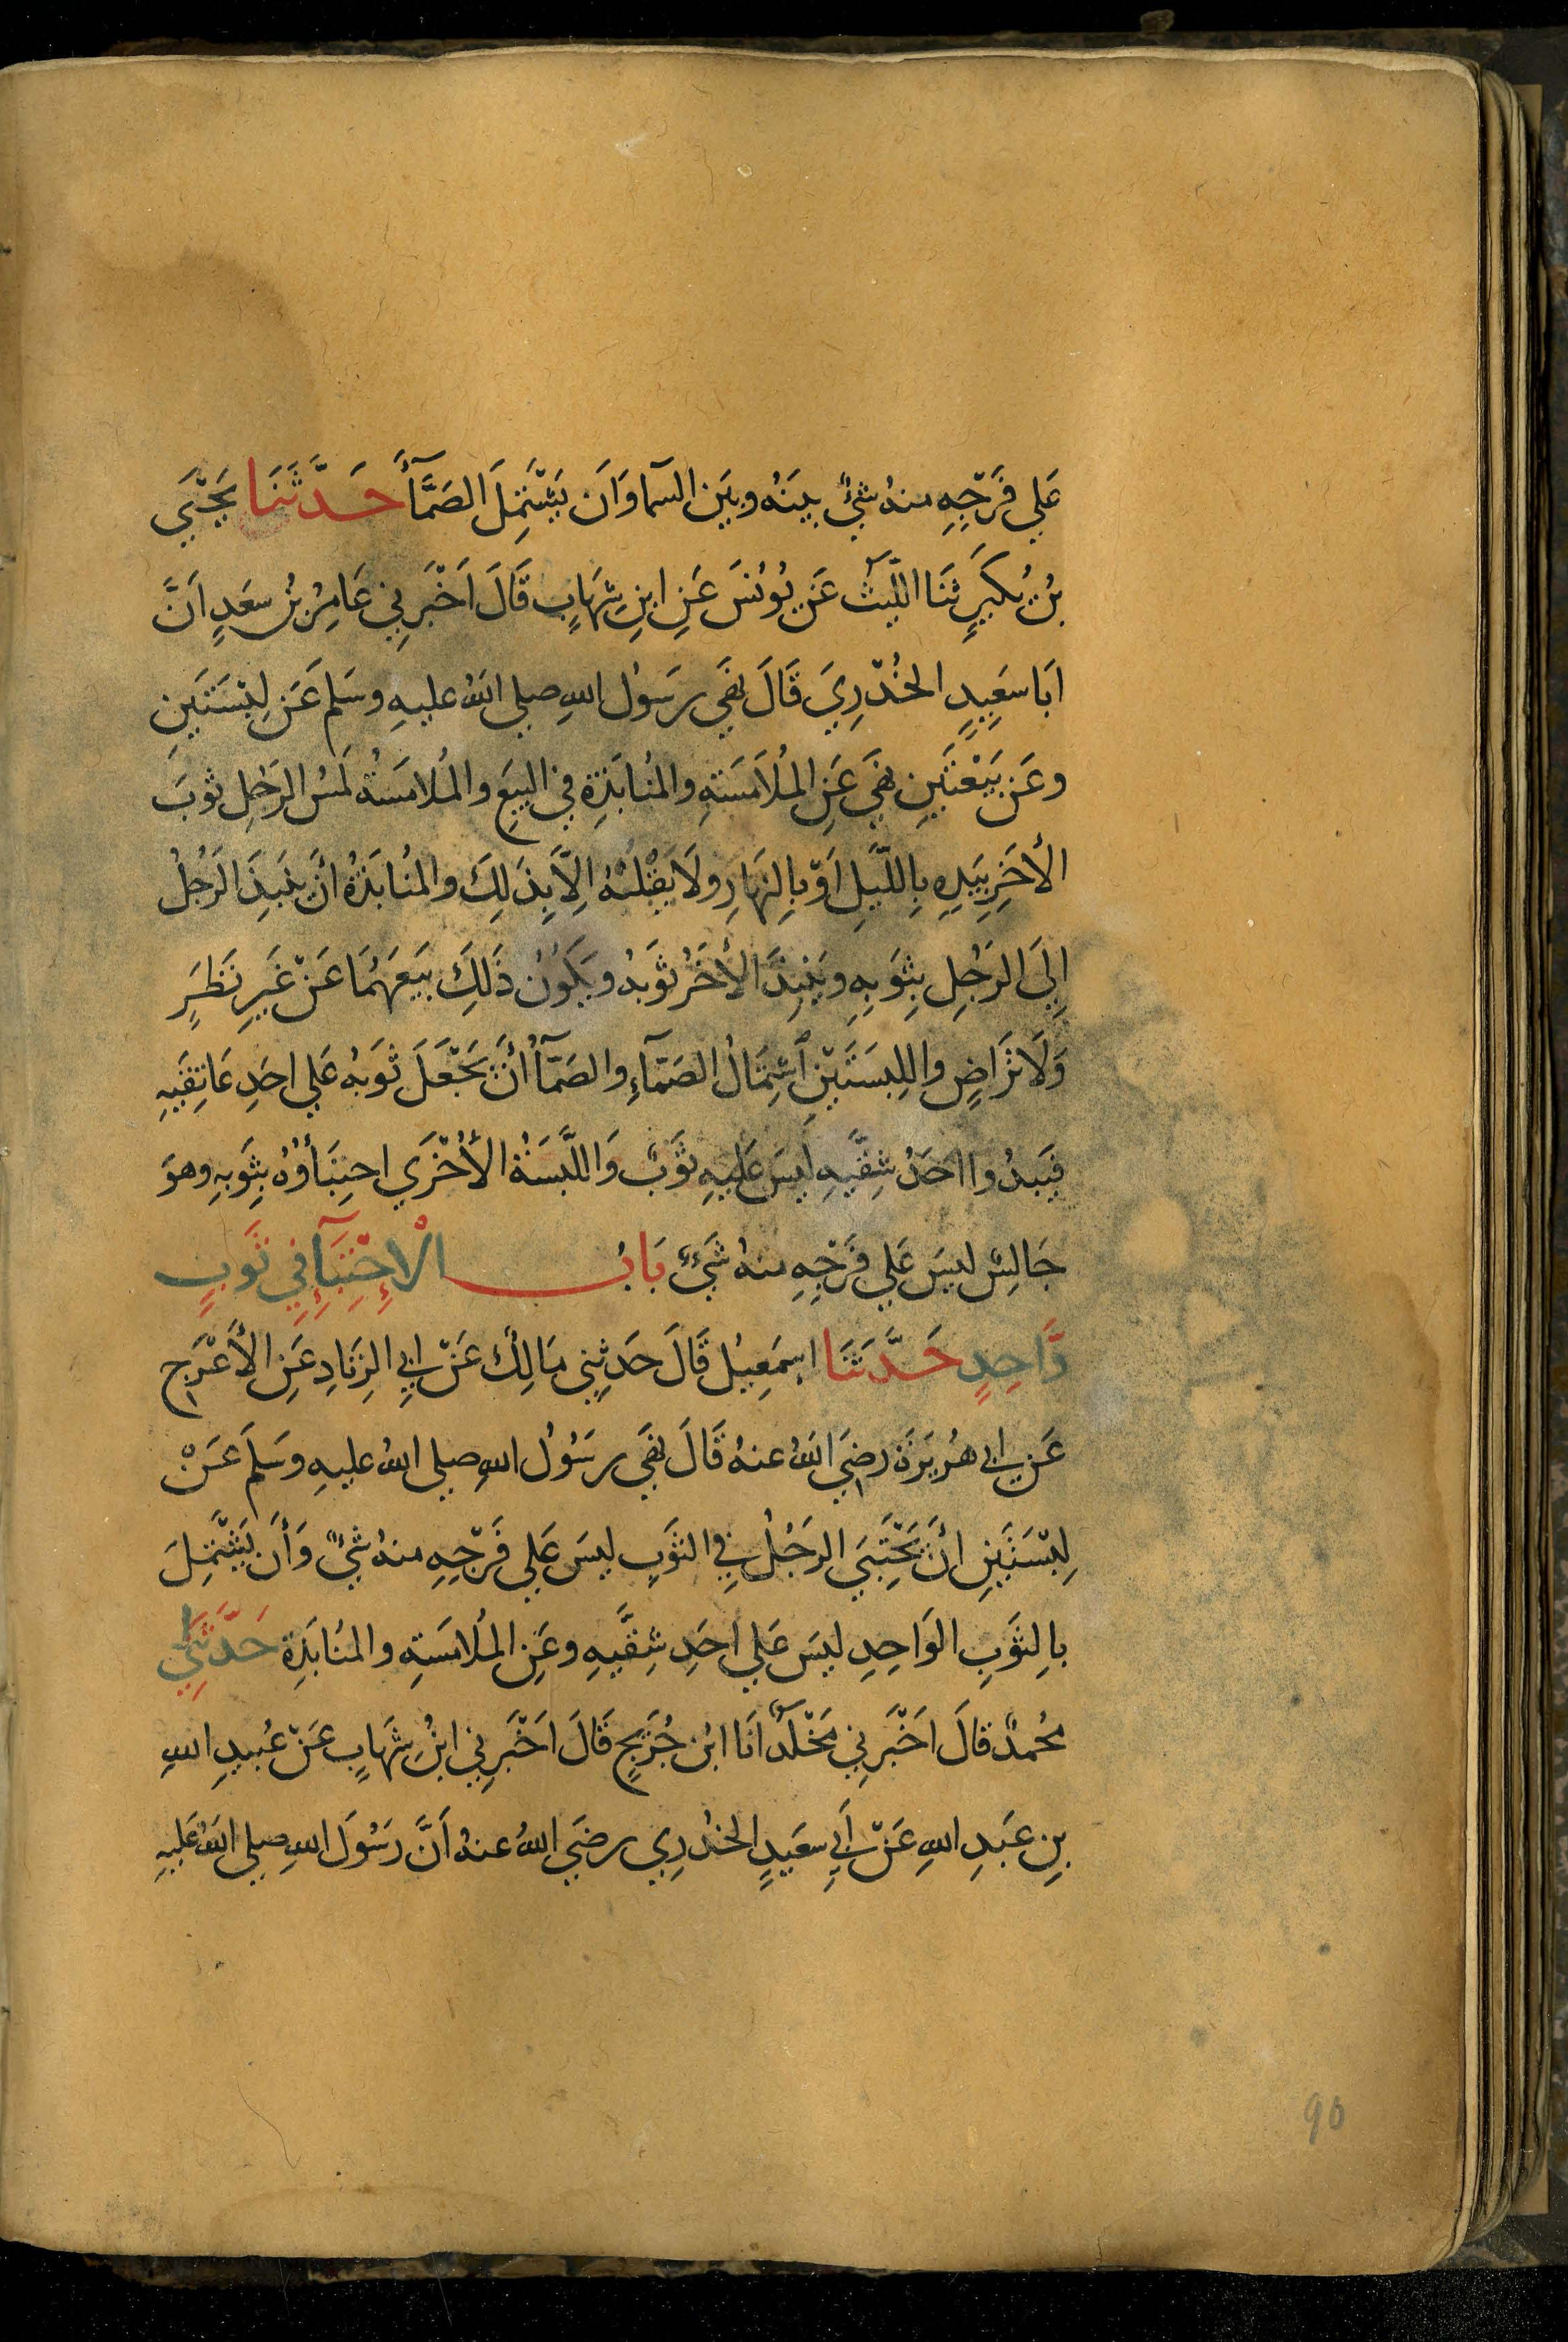 عَلي فَرْجِهِ منهُ شيْءٌ بينَهُ وبيَن السمآ وَاَن يَشْتَمِلَ الصَمَّآأَ حَدَّثَنَا يَحْيَي
بنُ بُكَيرٍ ثنَا اللَّيثُ عَن يُونُسَ عَنِ ابنِ شِهَابٍ قَالَ اَخْبَرنِي عَامِرُ بنُ سعَدٍ اَنَّ
ابَا سعَيِدٍ الخُدْرِيَ قَالَ نهَي رسَوُل اللهِ صلي اللهُ عليهِ وسَلم عَن لِبْسَتَينِ
وعَن بَيْعَتَينِ نهَي عَنِ المُلاَمَسَةِ والمُنابَذةِ في البيَعِ والمُلامَسَةُ لَمسُ الرَجُلِ ثوبَ
الأخَرِ بيَدِهِ بِاللَّيلِ اَوْ بِالنهَارِ ولَا يَقْلبْهُ اِلاَّ بِذَلِكَ والمُنابَذةُ انَّ ينَبِذَ الرَجُلُ
اِلَي الرَجُلِ بِثوَبِهِ ويَنْبِذَ الأخَرُ ثوَبهُ ويَكوُنُ ذَلِكَ بيَعَهُمَا عَنْ غَيرِ نَظَرٍ
وَلَا تَرَاضٍ واللِبسَتَيْنِ اشْتِمَالُ الصَمّآءِ والصَمّآأُ انَّ يَجْعَلَ ثوَبهُ عَلي احَدِ عَاتِقَيهِ
فيَبدُوا احَدُ شِقَّيهِ ليسَ عَلَيهِ ثوَبٌ وَاللَّبسَةُ الأُخْرَي احتِبَاؤُهُ بِثوَبهِ وهوَ
جَالِسٌ ليسَ عَلي فَرْجِهِ منهُ شَيْءٌ بَابُ الْاِحْتِبَآءِ فِي ثَوبٍ
وَّاحِدٍ حَدَّثَنَا اِسمَعِيلُ قَالَ حَدثِني مَالِكٌ عَنْ ابِي الزِنَادِ عَنِ الأَعْرَجِ
عَن ابي هُريَرَةَ رضِيَ اللهُ عنهُ قَالَ نهَي رسَوُلُ اللهِ صلي اللهُ عليهِ وسَلَم عَنْ
لِبْسَتَينِ انَّ يَحْتَبِيَ الرَجُلُ فِي الثوَبِ ليسَ عَلي فَرْجِهِ منهُ شيْءٌ وَأَن يَشْتَمِلَ
بِالثوَبِ الوَاحِدِ ليسَ عَلي احَدِ شِقَّيهِ وعَنِ المُلامَسَةِ والمُنَابَذةِ حَدَّثَنِي
مُحمدٌ قالَ اَخْبَرنِي مَخْلَدٌ انَا ابنُ جُرَيجٍ قَالَ اَخْبَرنِي ابنُ شِهَابٍ عَنْ عُبيدِ اللهِ
بنِ عبَدِ اللهِ عَنْ اَبِي سعَيدٍ الخدْرِي رضَي اللهُ عنهُ اَنَّ رَسُولَ اللهِ صلي اللهُ عَليهِ
90